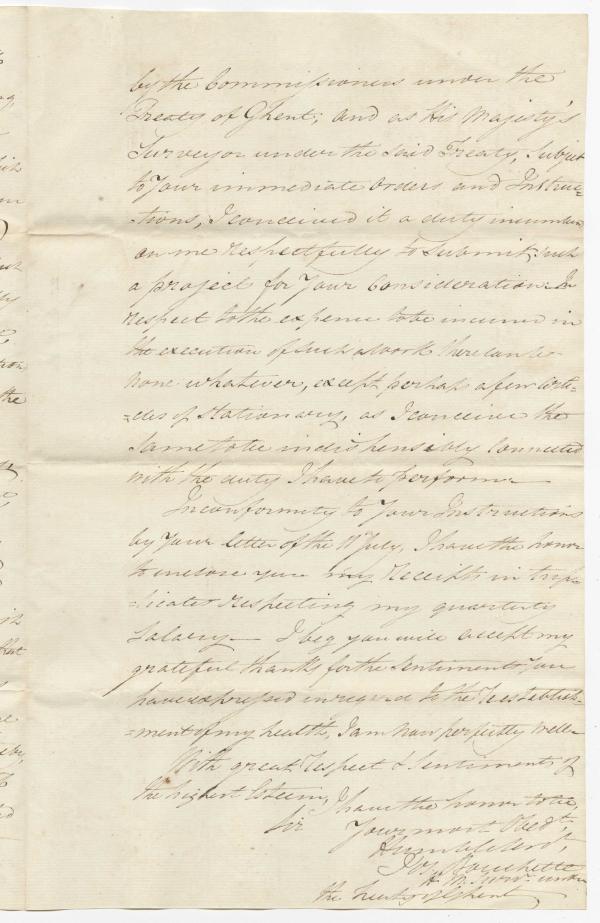 by the Commissioners under the
Treaty of Ghent; and as His Majesty's
Surveyor under the said Treaty, Subject
to Your immediate Orders and Instruc=
=tions, I conceived it a duty incumbent
on me respectfully to Submit such
a project for Your Consideration. In
respect to the expence to be incurred in
the execution of such a work there can be
none whatever, except perhaps a few Arti=
=cles of Stationary, as I conceive the
same to be indispensibly Connected
with the duty I have to perform—
In conformity to Your Instructions
by Your letter of the 11 July, I have the honor
to enclose you my Receipts in trip=
=licates respecting my quarterly
Salary— I beg you will accept my
grateful thanks for the Sentiments You
have expressed in regard to the reestablish=
=ment of my health, I am now perfectly well—
With great respect & Sentiments of
the highest Esteem, I have the honor to be,
Sir Your most Obedt,
Humble Servt,
Jos. Bouchette
H. M. Survr. under
the Treaty of Ghent